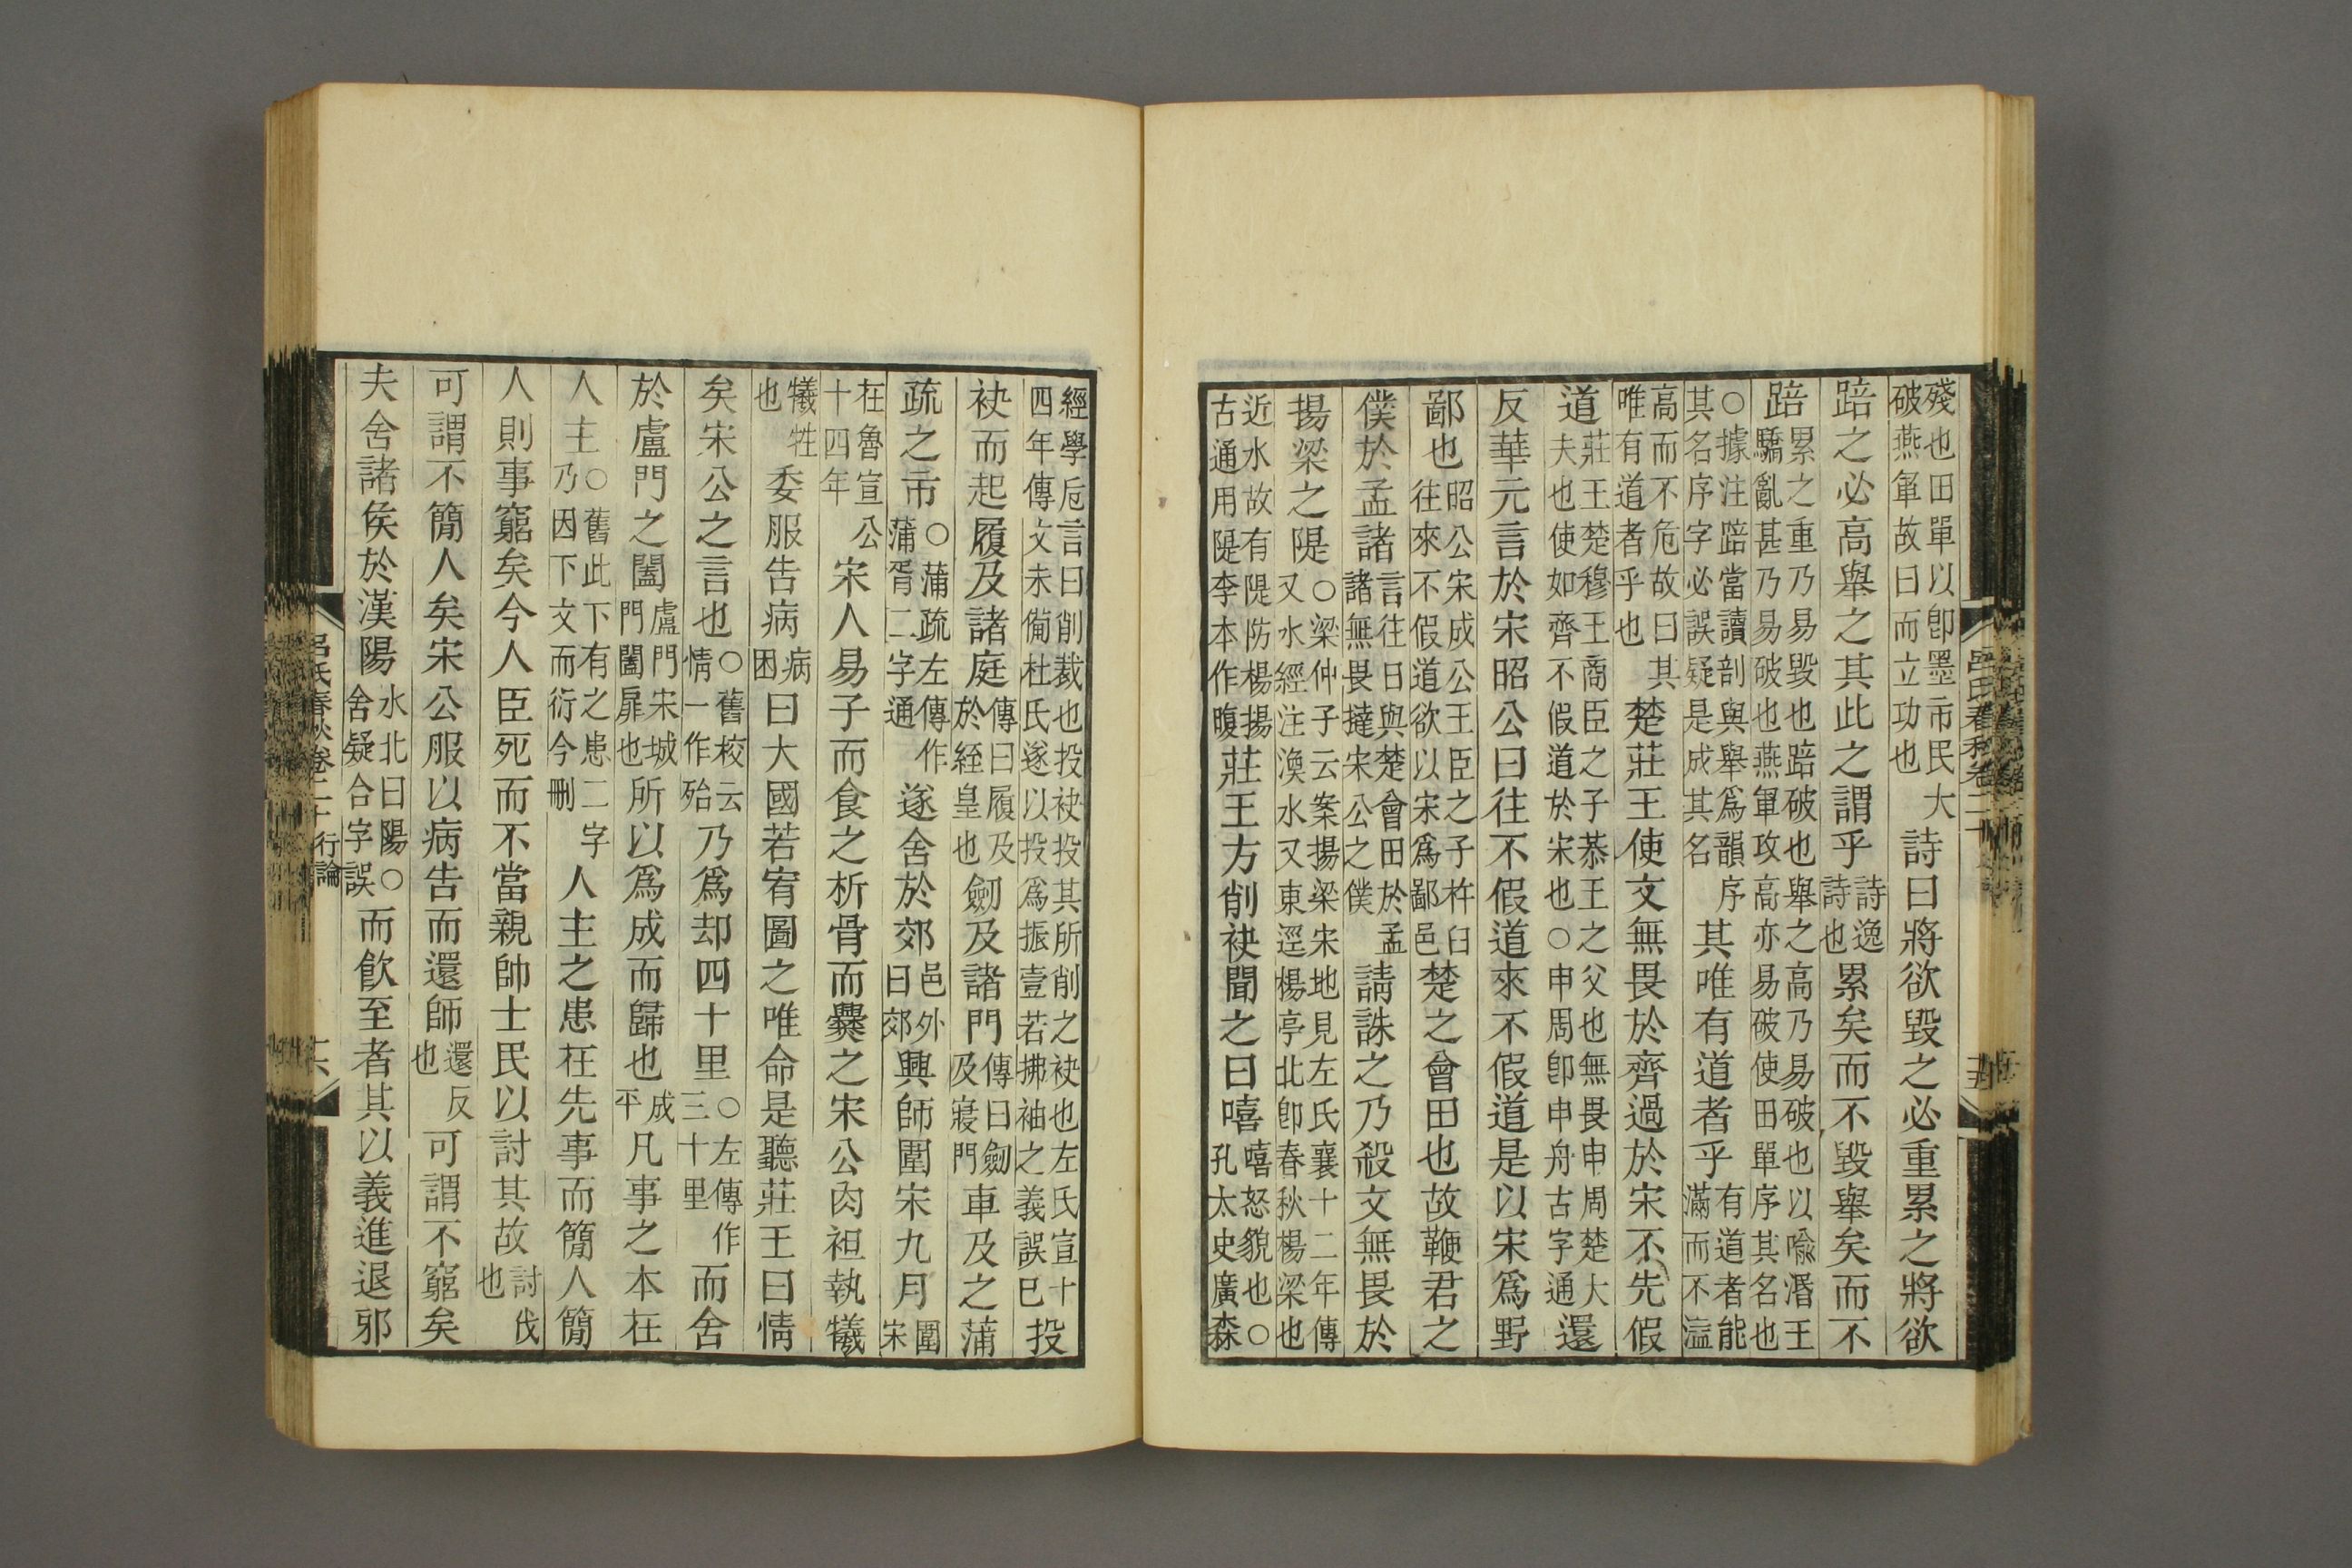 殘也田單以卽墨市民大破燕軍故曰而立功也詩曰將欲毀之必重累之將欲
踣之必高舉之其此之謂乎詩逸詩也累矣而不毀舉矣而不
踣累之重乃易毀也踣破也舉之高乃易破也以喻湣王驕亂甚乃易破也燕軍攻高亦易破使田單序其名也
○據注踣當讀剖與舉爲韻序其名序字必誤疑是成其名其唯有道者乎有道者能滿而不溢
高而不危故曰其唯有道者乎也楚莊王使文無畏於齊過於宋不先假
道莊王楚穆王商臣之子恭王之父也無畏申周楚大夫也使如齊不假道於宋也○申周卽申舟古字通還
反華元言於宋昭公曰往不假道來不假道是以宋爲野
鄙也昭公宋成公王臣之子杵臼往來不假道欲以宋爲鄙邑楚之會田也故鞭君之
僕於孟諸言往日與楚會田於孟諸無畏撻宋公之僕請誅之乃殺文無畏於
揚梁之隄○梁仲子云案揚梁宋地見左氏襄十二年傳又水經注渙水又東逕楊亭北卽春秋楊梁也
近水故有隄防楊揚古通用隄李本作莊王方削袂聞之曰嘻嘻怒貌也○孔太史廣森
呂氏春秋卷二十
經學卮言曰削裁也投袂投其所削之袂也左氏宣十四年傳文未備杜氏遂以投爲振壹若拂袖之義誤已投
袂而起履及諸庭傳曰履及於絰皇也劒及諸門傳曰劒及寢門車及之蒲
疏之市○蒲疏左傳作蒲胥二字通遂舍於郊邑外曰郊興師圍宋九月圍宋
在魯宣公十四年宋人易子而食之析骨而爨之宋公肉袒執犧
犧牲也委服告病病困曰大國若宥圖之唯命是聽莊王曰情
矣宋公之言也○舊校云情一作殆乃爲却四十里○左傳作三十里而舍
於盧門之闔盧門宋城門闔扉也所以爲成而歸也成平凡事之本在
人主○舊此下有之患二字乃因下文而衍今刪人主之患在先事而簡人簡
人則事窮矣今人臣死而不當親帥士民以討其故討伐也
可謂不簡人矣宋公服以病告而還師還反也可謂不窮矣
夫舍諸侯於漢陽水北曰陽○舍疑合字誤而飮至者其以義進退邪
呂氏春秋卷二十 行論